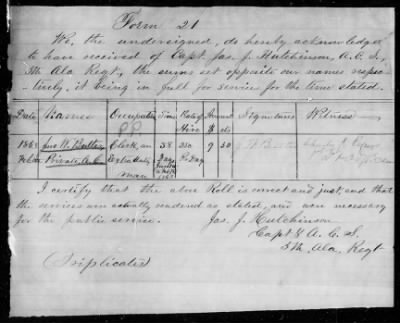 Form 21
We, the undersigned, do hereby acknowledge
to have received of Capt. Jas. J. Hutchinson, A. C. S.,
5th Ala Regt, the sums set opposite our names respec-
tively, it being in full for service for the time stated.
Date Names Occupation Time Rate of Hire Amount $ cts Signatures Witness
1863 Jno W. Butler Clerk, an 38 25c 9 50
Private, A. C. Days Pr Day
man
I certify that the above Roll is correct and just and that
the services were actually rendered as stated, and were necessary
for the public service. Jas. J. Hutchinson
Capt & A. C. S.
5th, Ala, Regt
(Triplicates)